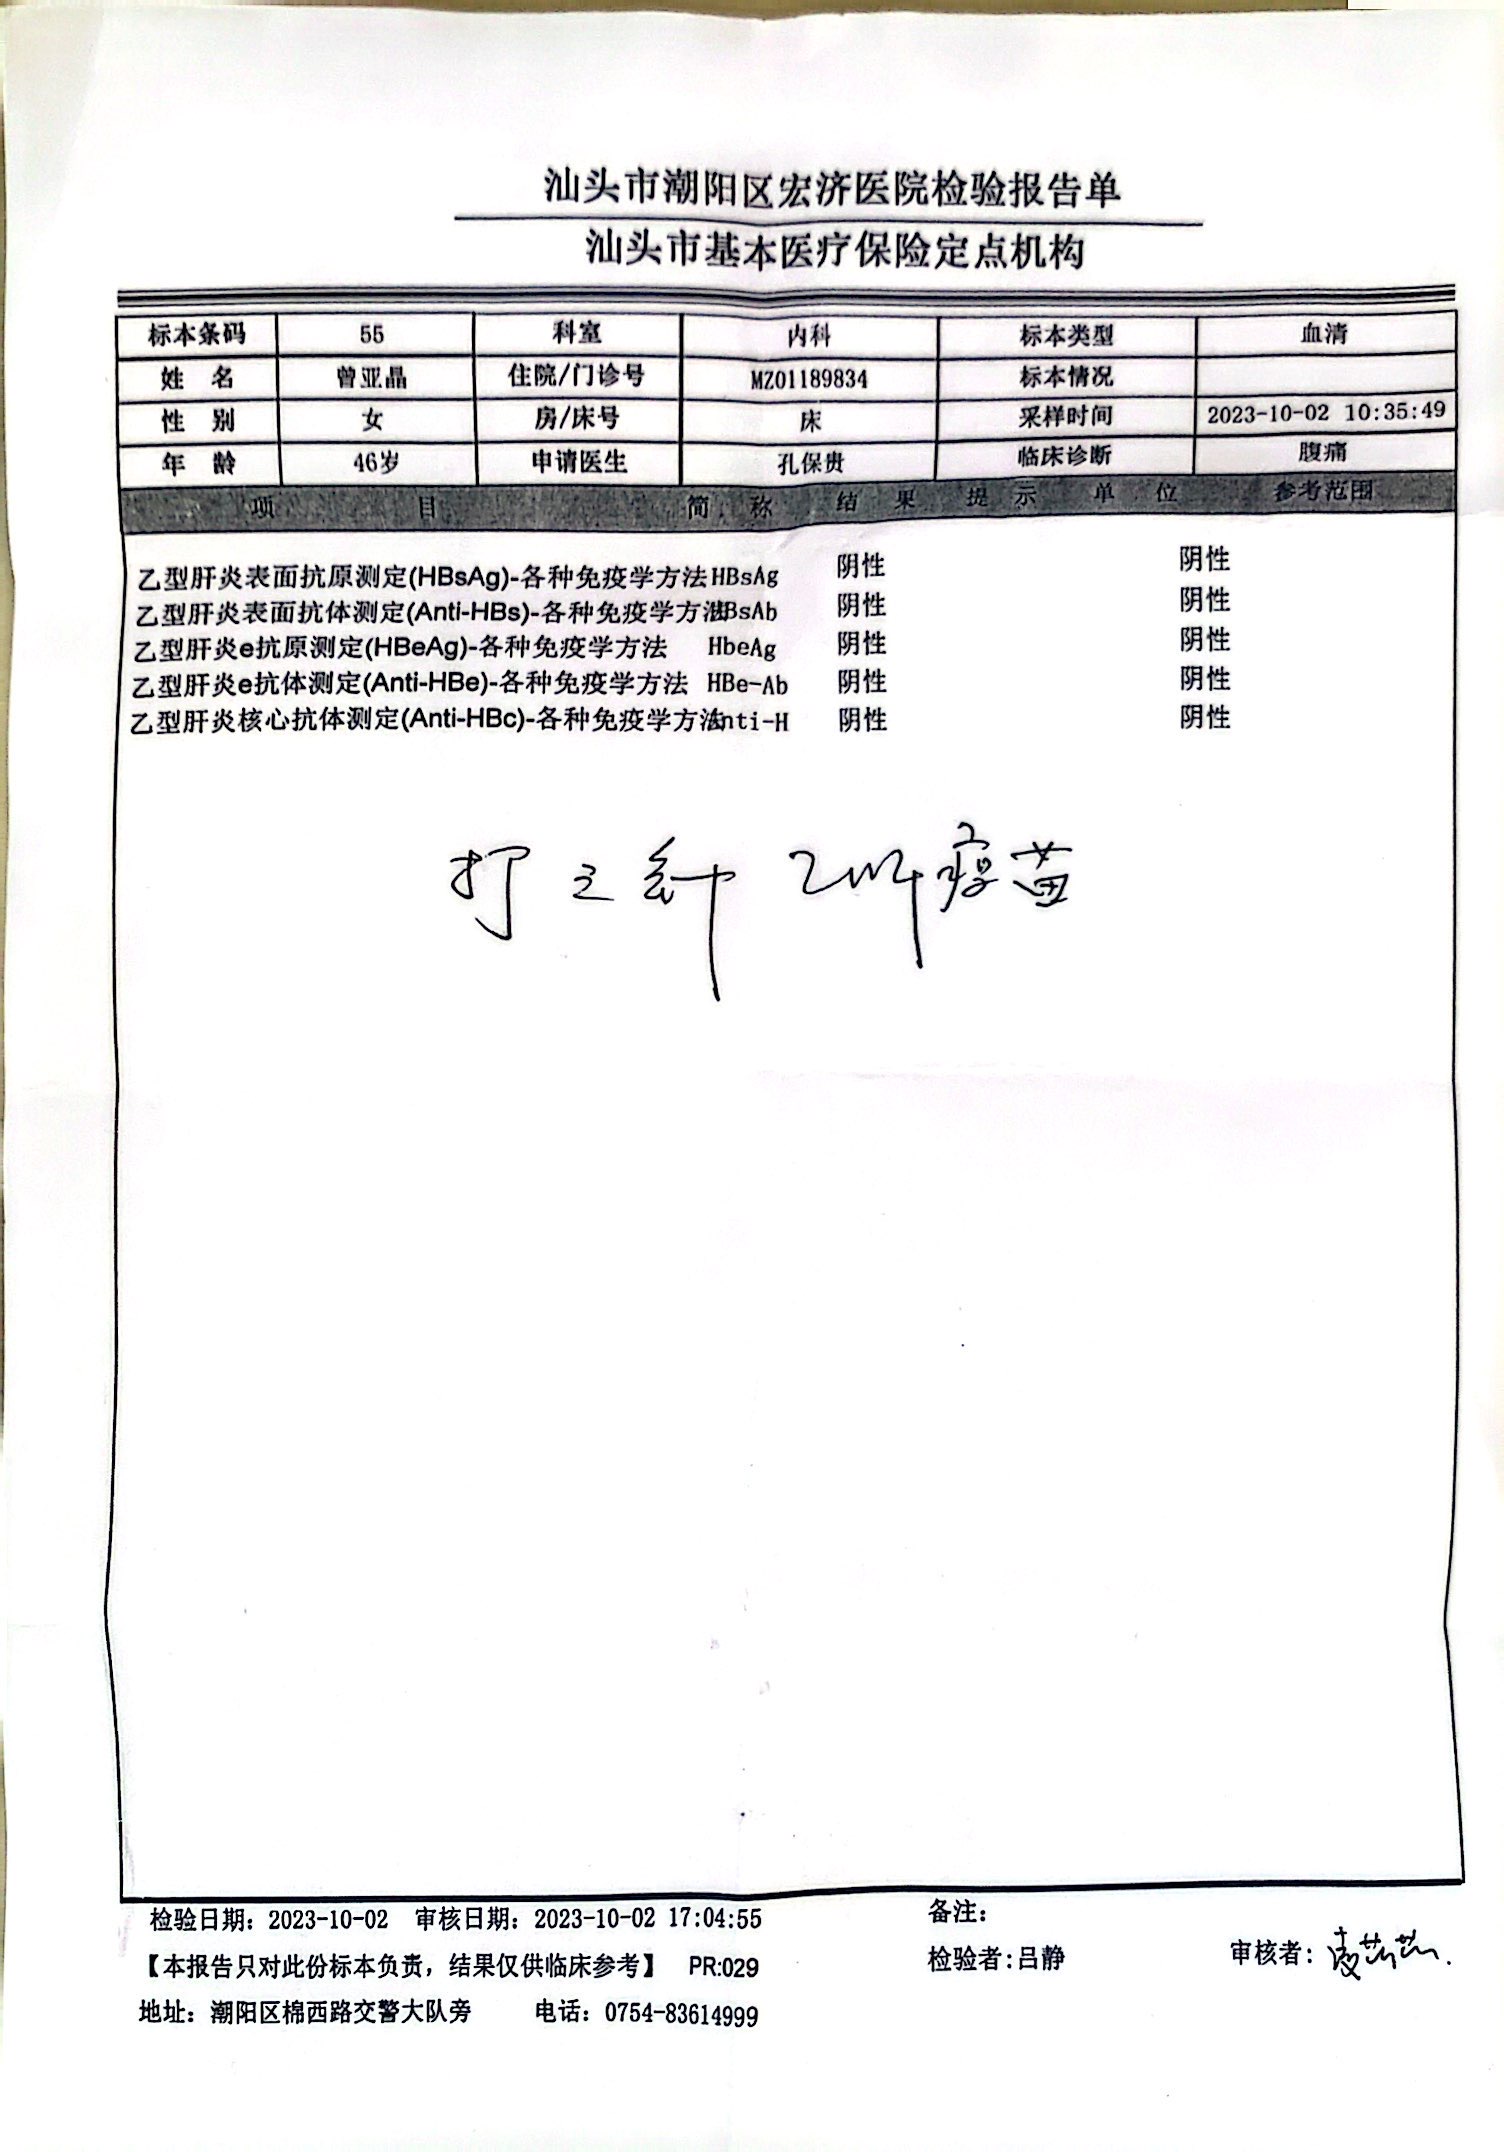 汕头市潮阳区宏济医院检验报告单
汕头市基本医疗保险定点机构
标本条码 55 科室 内科 标本类型 血清
姓 名 曾亚晶 住院/门诊号 MZ01189834 标本情况
性 别 女 房/床号 床 采样时间 2023-10-02 10:35:49
年 龄 46岁 申请医生 孔保贵 临床诊断 腹痛
项 目 简 称 结 果 提 示 单 位 参考范围
乙型肝炎表面抗原测定(HBsAg)-各种免疫学方法 HBsAg 阴性 阴性
乙型肝炎表面抗体测定(Anti-HBs)-各种免疫学方法 HBsAb 阴性 阴性
乙型肝炎e抗原测定(HBeAg)-各种免疫学方法 HbeAg 阴性 阴性
乙型肝炎e抗体测定(Anti-HBe)-各种免疫学方法 HBe-Ab 阴性 阴性
乙型肝炎核心抗体测定(Anti-HBc)-各种免疫学方法 Anti-H 阴性 阴性
打三针 乙肝疫苗
检验日期: 2023-10-02 审核日期: 2023-10-02 17:04:55 备注:
【本报告只对此份标本负责，结果仅供临床参考】 PR:029 检验者:吕静 审核者:
地址: 潮阳区棉西路交警大队旁 电话: 0754-83614999